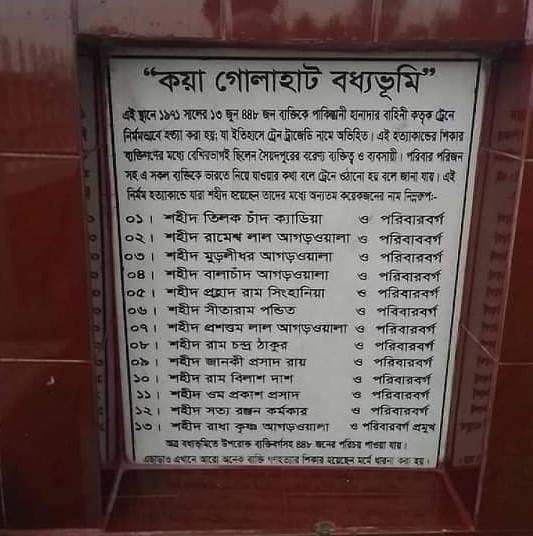 “কয়া গোলাহাট বধ্যভূমি”
এই স্থানে ১৯৭১ সালের ১৩ জুন ৪৪৮ জন ব্যক্তিকে পাকিস্তানী হানাদার বাহিনী কতৃক ট্রেনে
নির্মমভাবে হত্যা করা হয়; যা ইতিহাসে ট্রেন ট্রাজেডি নামে অভিহিত। এই হত্যাকান্ডের শিকার
ব্যক্তিগণের মধ্যে বেশিরভাগই ছিলেন সৈয়দপুরের বরেণ্য ব্যক্তিত্ব ও ব্যবসায়ী। পরিবার পরিজন
সহ এ সকল ব্যক্তিকে ভারতে নিয়ে যাওয়ার কথা বলে ট্রেনে ওঠানো হয় বলে জানা যায়। এই
নির্মম হত্যাকান্ডে যারা শহীদ হয়েছেন তাদের মধ্যে অন্যতম কয়েকজনের নাম নিম্নরুপ:-
০১। শহীদ তিলক চাঁদ ক্যাডিয়া ও পরিবারবর্গ
০২। শহীদ রামেশ্ব লাল আগড়ওয়ালা ও পরিবাববর্গ
০৩। শহীদ মুড়লীধর আগড়ওয়ালা ও পরিবারবর্গ
০৪। শহীদ বালাচাঁদ আগড়ওয়ালা ও পরিবারবর্গ
০৫। শহীদ প্রহ্লাদ রাম সিংহানিয়া ও পরিবারবর্গ
০৬। শহীদ সীতারাম পন্ডিত ও পবিবারবর্গ
০৭। শহীদ প্রশত্তম লাল আগড়ওয়ালা ও পরিবারবর্গ
০৮। শহীদ রাম চন্দ্র ঠাকুর ও পরিবারবর্গ
০৯। শহীদ জানকী প্রসাদ রায় ও পরিবারবর্গ
১০। শহীদ রাম বিলাশ দাশ ও পরিবারবর্গ
১১। শহীদ ওম প্রকাশ প্রসাদ ও পরিবারবর্গ
১২। শহীদ সত্য রঞ্জন কর্মকার ও পরিবারবর্গ
১৩। শহীদ রাধা কৃষ্ণ আগড়ওয়ালা ও পরিবারবর্গ প্রমুখ
অত্র বধ্যভূমিতে উপরোক্ত ব্যক্তিবর্গসহ ৪৪৮ জনের পরিচয় পাওয়া যায়।
এছাড়াও এখানে আরো অনেক ব্যক্তি গণহত্যার শিকার হয়েছেন মর্মে ধারনা করা হয়।